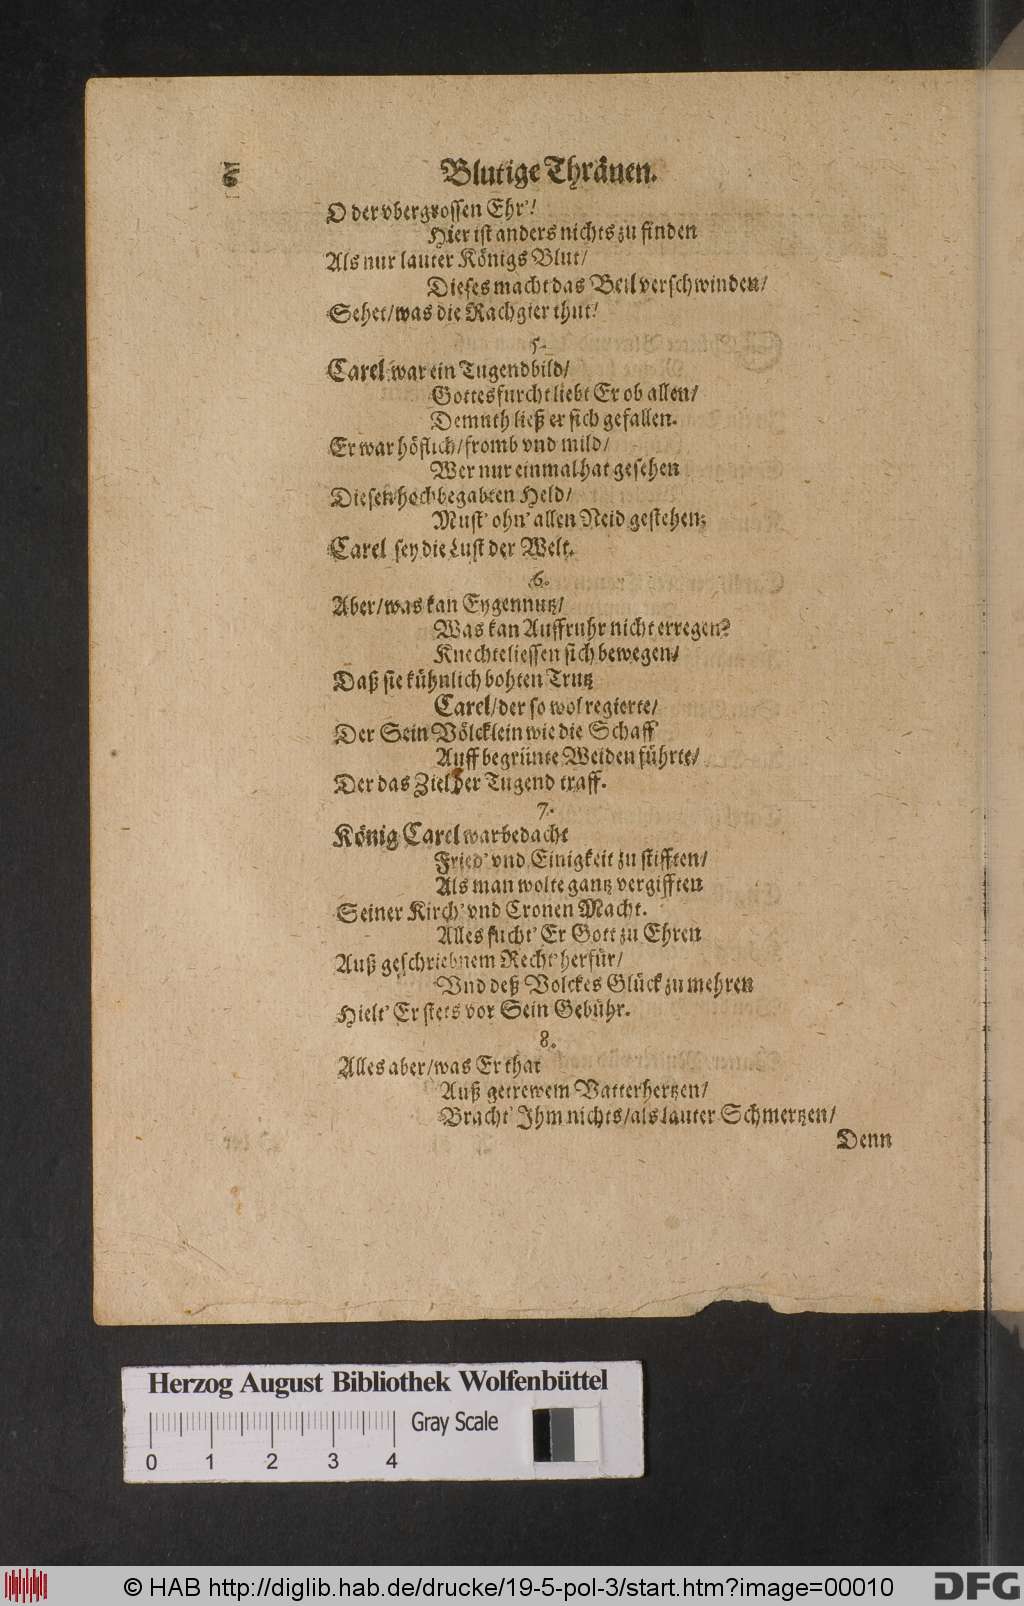 Blutige Thränen.
O der vbergrossen Ehr'!
Hier ist anders nichts zu finden
Als nur lauter Königs Blut/
Dieses macht das Beil verschwinden/
Sehet/was die Rachgier thut!
5.
Carel war ein Tugendbild/
Gottesfurcht liebt Er ob allen/
Demuth ließ er sich gefallen.
Er war höflich/fromb vnd mild/
Wer nur einmal hat gesehen
Diesen hochbegabten Held/
Must' ohn' allen Neid gestehen;
Carel sey die Lust der Welt.
6.
Aber/was kan Eygennutz/
Was kan Auffruhr nicht erregen?
Knechte liessen sich bewegen/
Daß sie kühnlich bohten Trutz
Carel/der so wol regierte/
Der Sein Völcklein wie die Schaff
Auff begrünte Weiden führte/
Der das Ziel der Tugend traff.
7.
König Carel war bedacht
Fried' vnd Einigkeit zu stifften/
Als man wolte gantz vergifften
Seiner Kirch' vnd Cronen Macht.
Alles sucht' Er Gott zu Ehren
Auß geschriebnem Recht' herfür/
Vnd deß Volckes Glück zu mehren
Hielt' Er stets vor Sein Gebühr.
8.
Alles aber/was Er that
Auß getrewem Vatterhertzen/
Bracht' Jhm nichts/als lauter Schmertzen/
Denn
Herzog August Bibliothek Wolfenbüttel
Gray Scale
0 1 2 3 4
© HAB http://diglib.hab.de/drucke/19-5-pol-3/start.htm?image=00010
DFG